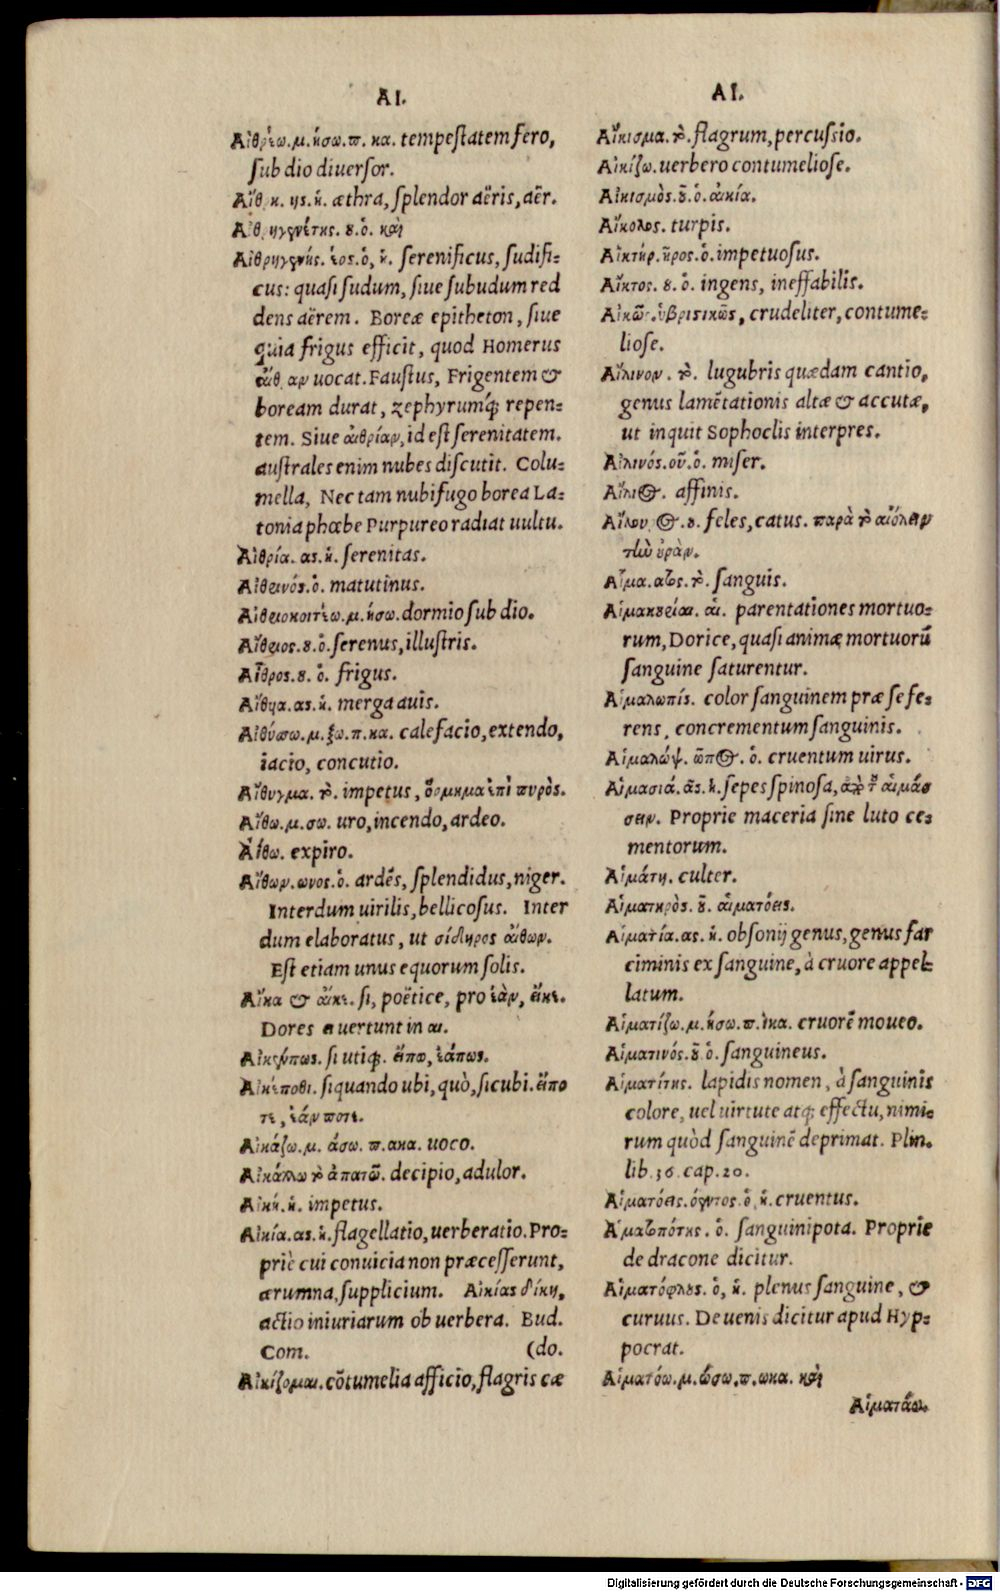 ΑΙ.
Αἰθρέω.μ.ήσω.π. κα. tempestatem fero,
sub dio diuersor.
Αἴθρη. ης. ἡ. æthra, splendor aëris, aër.
Αἰθρηγενέτης. ου. ὁ. καὶ
Αἰθρηγενής. έος. ὁ, ἡ. serenificus, sudifi-
cus: quasi sudum, siue subudum red
dens aërem. Boreæ epitheton, siue
quia frigus efficit, quod Homerus
uocat. Faustus, Frigentem &
boream durat, zephyrumq́; repen-
tem. Siue αἰθρίαν, id est serenitatem.
australes enim nubes discutit. Colu-
mella, Nec tam nubifugo borea La-
tonia phœbe Purpureo radiat uultu.
Αἰθρία. ας. ἡ. serenitas.
Αἰθρινός. ὁ. matutinus.
Αἰθριοκοιτέω.μ.ήσω. dormio sub dio.
Αἴθριος. ου. ὁ. serenus, illustris.
Αἶθρος. ου. ὁ. frigus.
Αἴθυα. ας. ἡ. merga auis.
Αἰθύσσω.μ.ξω.π.κα. calefacio, extendo,
iacio, concutio.
Αἴθυγμα. τὸ. impetus, ὅρμημα ἐπὶ πυρὸς.
Αἴθω.μ.σω. uro, incendo, ardeo.
Ἀΐθω. expiro.
Αἴθων. ωνος. ὁ. ardẽs, splendidus, niger.
Interdum uirilis, bellicosus. Inter
dum elaboratus, ut σίδηρος αἴθων.
Est etiam unus equorum solis.
Αἴκα & αἴκε. si, poëtice, pro ἐὰν, εἴκε.
Dores ει uertunt in αι.
Αἰκέπως. si utiq;. εἴπω, ἐάπως.
Αἰκέποθι. si quando ubi, quò, sicubi. εἴπο
τε, ἐάν ποτε.
Αἰκάζω.μ. άσω. π.ακα. uoco.
Αἰκάλλω τὸ ἀπατῶ. decipio, adulor.
Αἰκή. ἡ. impetus.
Αἰκία. ας. ἡ. flagellatio, uerberatio. Pro-
priè cui conuicia non præcesserunt,
ærumna, supplicium. Αἰκίας δίκη,
actio iniuriarum ob uerbera. Bud.
Com. (do.
Αἰκίζομαι. cõtumelia afficio, flagris cæ
ΑΙ.
Αἴκισμα. τὸ. flagrum, percussio.
Αἰκίζω. uerbero contumeliose.
Αἰκισμὸς. οῦ. ὁ. αἰκία.
Αἴκολος. turpis.
Αἰκτήρ. ῆρος. ὁ. impetuosus.
Αἴκτος. ου. ὁ. ingens, ineffabilis.
Αἰκῶς. ὑβριστικῶς, crudeliter, contume-
liose.
Αἴλινον. τὸ. lugubris quædam cantio,
genus lamẽtationis altæ & accutæ,
ut inquit Sophoclis interpres.
Αἰλινός. οῦ. ὁ. miser.
Αἴλιος. affinis.
Αἴλουρος. ου. feles, catus. παρὰ τὸ αἰόλειν
τὴν οὐρὰν.
Αἷμα. ατος. τὸ. sanguis.
Αἱμακουρίαι. αἱ. parentationes mortuo-
rum, Dorice, quasi animæ mortuorũ
sanguine saturentur.
Αἱμαλωπίς. color sanguinem præ se fe-
rens, concrementum sanguinis.
Αἱμαλώψ. ῶπος. ὁ. cruentum uirus.
Αἱμασιά. ᾶς. ἡ. sepes spinosa, ἀπὸ τοῦ αἱμάσ
σειν. Proprie maceria sine luto ce-
mentorum.
Αἱμάτη. culter.
Αἱματηρὸς. οῦ. αἱματόεις.
Αἱματία. ας. ἡ. obsonij genus, genus far
ciminis ex sanguine, à cruore appel-
latum.
Αἱματίζω.μ.ήσω.π.ικα. cruorẽ moueo.
Αἱματινός. οῦ ὁ. sanguineus.
Αἱματίτης. lapidis nomen, à sanguinis
colore, uel uirtute atq; effectu, nimi-
rum quòd sanguinẽ deprimat. Plin.
lib.36.cap.20.
Αἱματόεις. όεντος. ὁ, ἡ. cruentus.
Αἱματοπότης. ὁ. sanguinipota. Proprie
de dracone dicitur.
Αἱματόφλους. ὁ, ἡ. plenus sanguine, &
curuus. De uenis dicitur apud Hyp-
pocrat.
Αἱματόω.μ.ώσω.π.ωκα. καὶ
Αἱματάω.
Digitalisierung gefördert durch die Deutsche Forschungsgemeinschaft - DFG